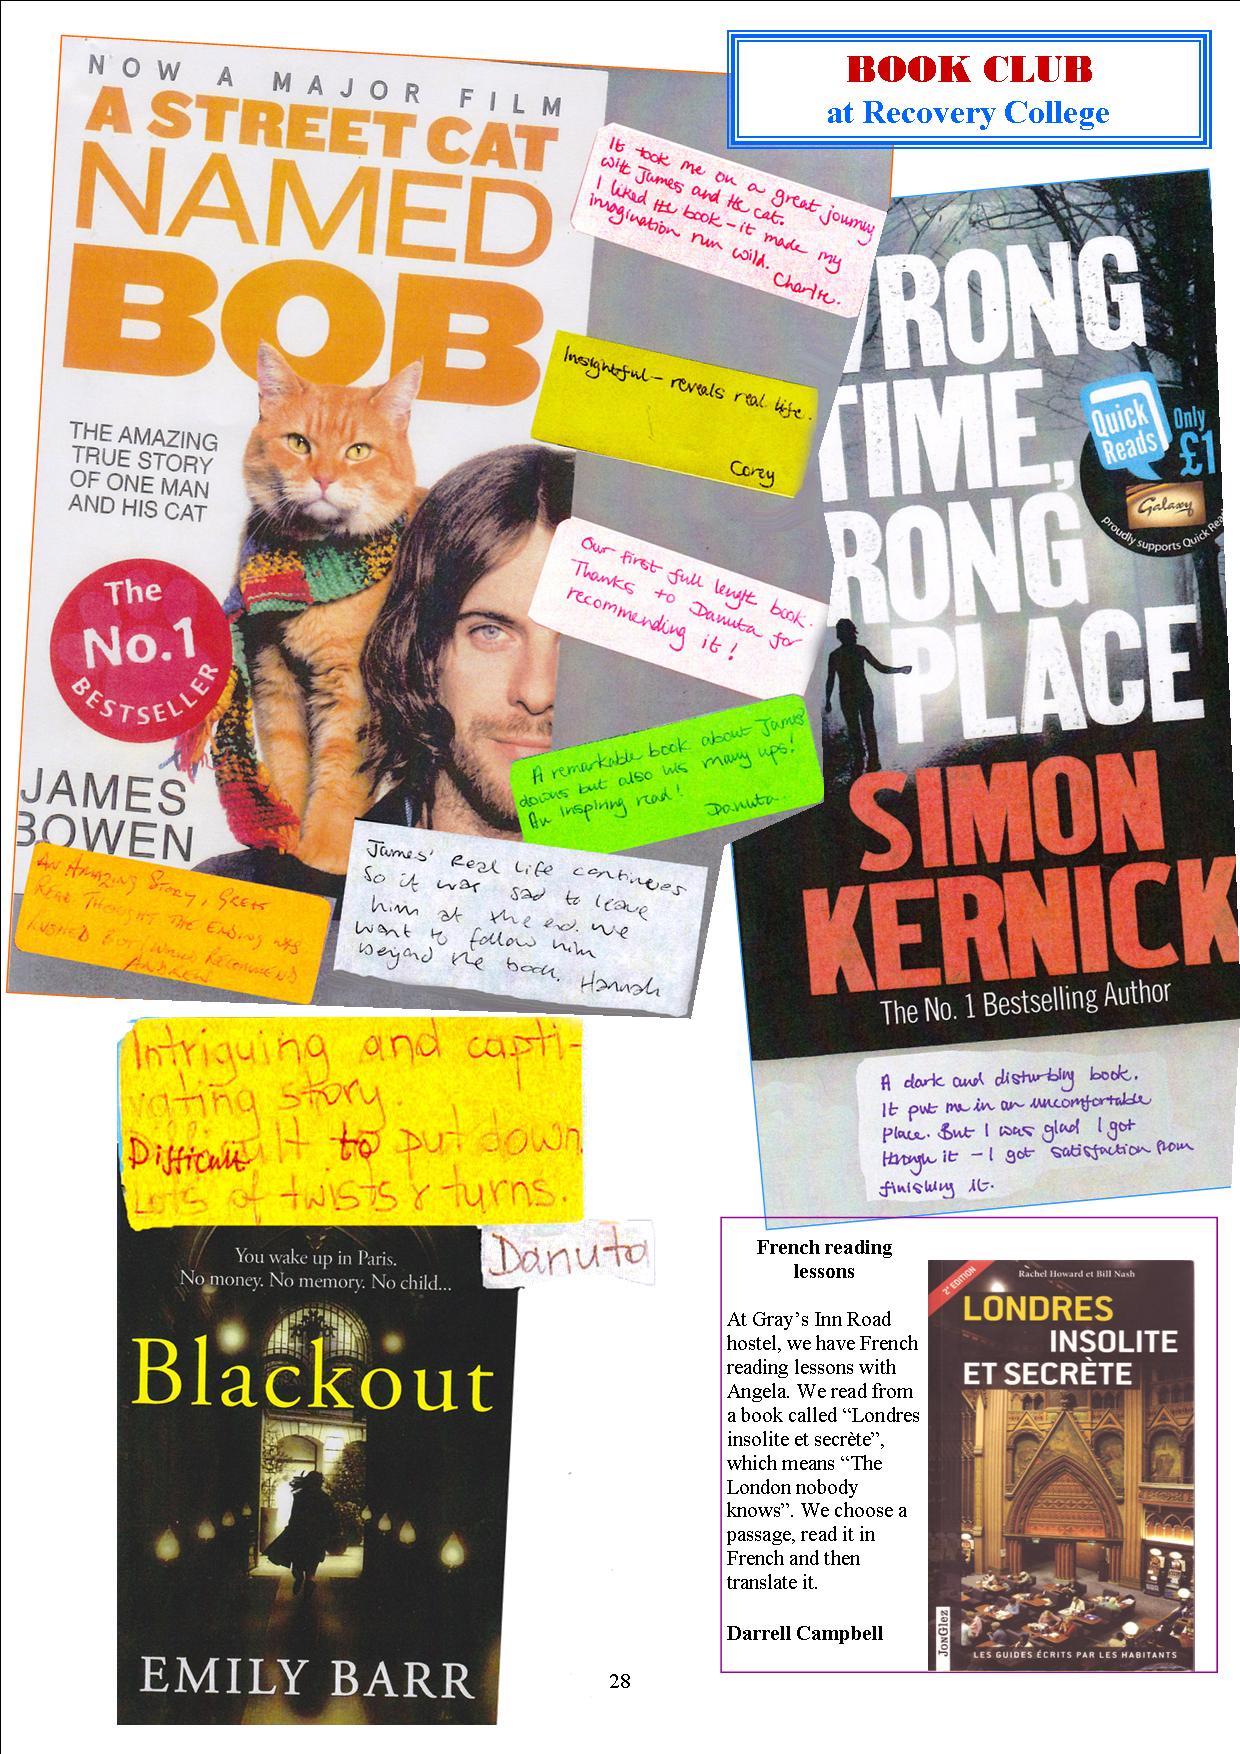 BOOK CLUB
at Recovery College
NOW A MAJOR FILM
A STREET CAT
NAMED
BOB
THE AMAZING
TRUE STORY
OF ONE MAN
AND HIS CAT
The
No.1
BESTSELLER
JAMES
BOWEN
It took me on a great journey
with James and the cat.
I liked the book - it made my
imagination run wild.
Charlie.
Insightful - reveals real life.
Corey
Our first full length book.
Thanks to Danuta for
recommending it!
A remarkable book about James'
downs but also his many ups!
An inspiring read!
Danuta
AN AMAZING STORY, GREAT
READ THOUGHT THE ENDING WAS
RUSHED BUT WOULD RECOMMEND
ANDREW
James' Real Life continues
So it was sad to leave
him at the end. We
want to follow him
beyond the book. Hannah
WRONG
TIME,
RONG
PLACE
Quick
Reads
Only
£1
Galaxy
proudly supports Quick Rea
SIMON
KERNICK
The No. 1 Bestselling Author
A dark and disturbing book.
It put me in an uncomfortable
place. But I was glad I got
through it - I got satisfaction from
finishing it.
Intriguing and capti-
vating story.
Difficult to put down
Lots of twists & turns.
Danuta
You wake up in Paris.
No money. No memory. No child...
Blackout
EMILY BARR
French reading
lessons
At Gray's Inn Road
hostel, we have French
reading lessons with
Angela. We read from
a book called “Londres
insolite et secrète”,
which means “The
London nobody
knows”. We choose a
passage, read it in
French and then
translate it.
Darrell Campbell
2e EDITION
Rachel Howard et Bill Nash
LONDRES
INSOLITE
ET SECRÈTE
JONGLEZ
LES GUIDES ÉCRITS PAR LES HABITANTS
28